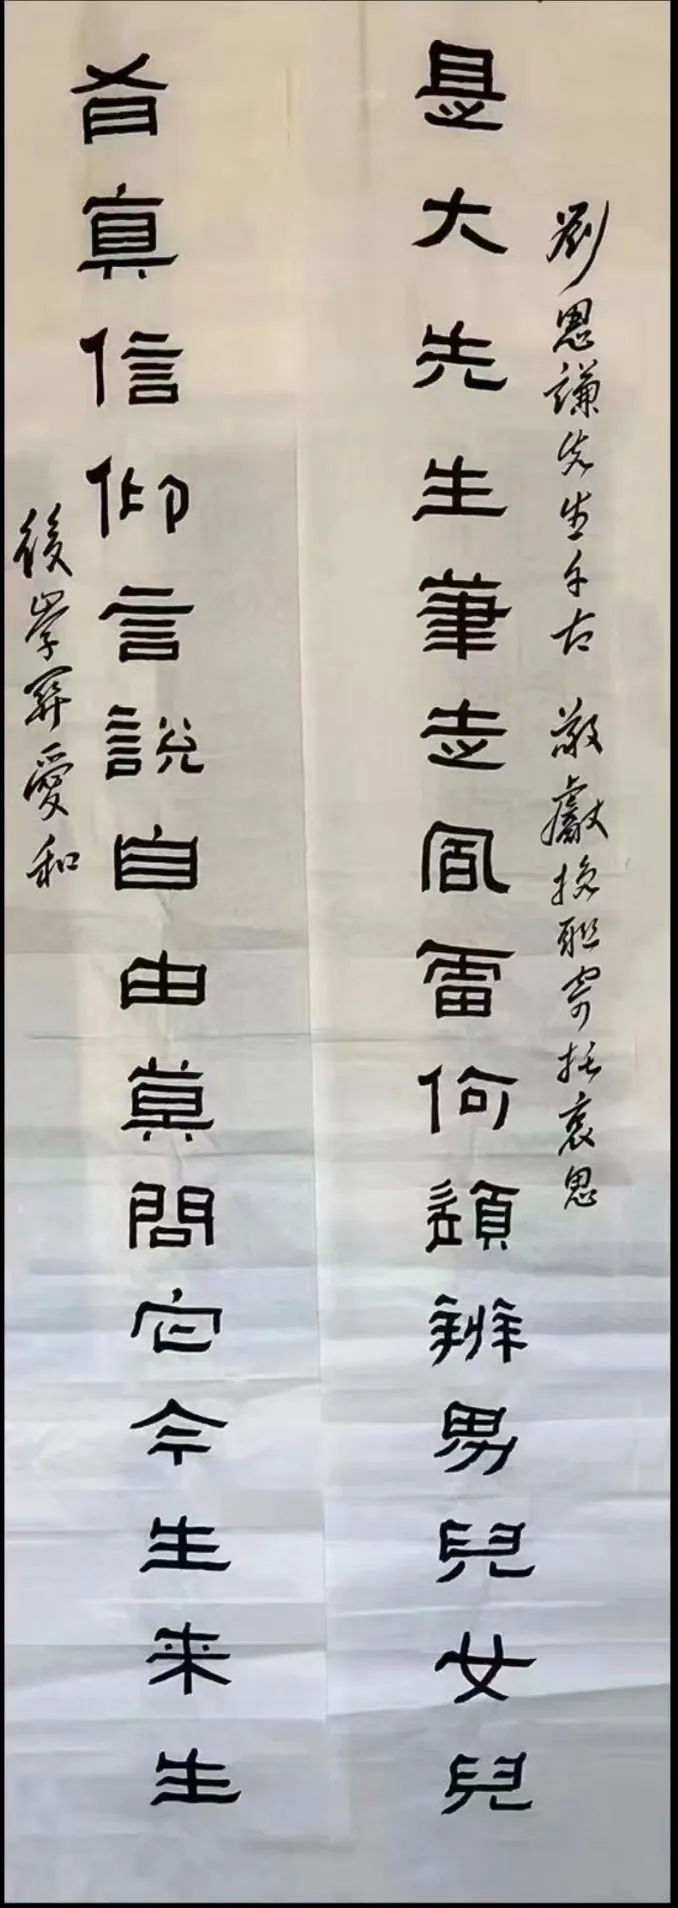 劉思謙先生千古 敬獻挽聯寄托哀思
是大先生筆走風雷何須辨男兒女兒
有真信仰言說自由莫問它今生来生
後學關愛和